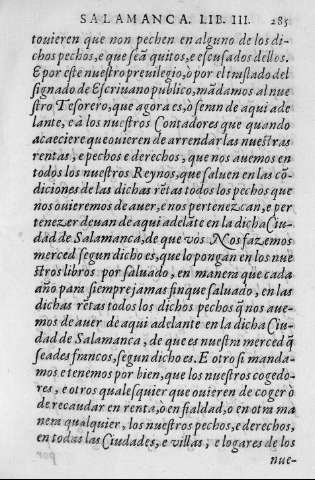 SALAMANCA. LIB. III. 285
touieren que non pechen en alguno de los di-
chos pechos, e que seã quitos, e escusados dellos.
E por este nuestro preuilegio, ò por el traslado del
signado de Escriuano publico, mãdamos al nue
stro Tesorero, que agora es, ò seran de aqui ade
lante, e à los nuestros Contadores que quando
acaeciere que ouieren de arrendar las nuestras
rentas, e pechos e derechos, que nos auemos en
todos los nuestros Reynos, que saluen en las cõ
diciones de las dichas rẽtas todos los pechos que
nos ouieremos de auer, e nos pertenezcan, e per
tenezer deuan de aqui adelãte en la dicha Ciu
dad de Salamanca, de que vos Nos fazemos
merced segun dicho es, que lo pongan en los nue
stros libros por saluado, en manera que cada
año para siempre jamas finque saluado, en las
dichas rẽtas todos los dichos pechos q̃ nos aue-
mos de auer de aqui adelante en la dicha Ciu-
dad de Salamanca, de que es nuestra merced q̃
seades francos, segun dicho es. E otro si manda-
mos e tenemos por bien, que los nuestros cogedo-
res, e otros qualesquier que ouieren de coger ò
de recaudar en renta, o en fialdad, o en otra ma
nera qualquier, los nuestros pechos, e derechos,
en todas las Ciudades, e villas, e logares de los
nue-